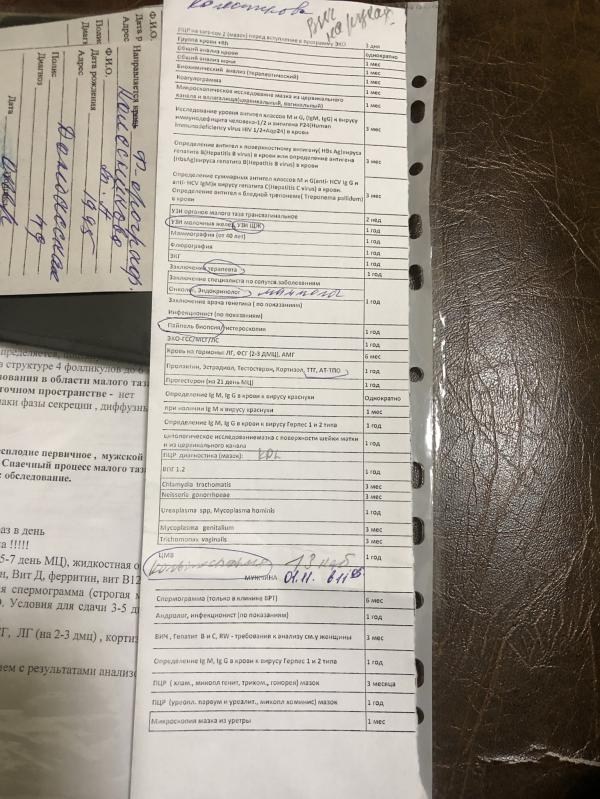 ВИЧ
на руках
ПЦР на sars-cov 2 (мазок) перед вступление в программу ЭКО 3 дня
Группа крови +Rh однократно
Общий анализ крови 1 мес
Общий анализ мочи 1 мес
Биохимический анализ (терапевтический) 1 мес
Коагулограмма 1 мес
Микроскопическое исследование мазка из цервикального
канала и влагалища(цервикальный, вагинальный) 1 мес
Исследование уровня антител классов M и G, (IgM, IgG) к вирусу
иммунодефицита человека-1/2 и антигена P24(Human
Immunodeficiency virus HIV 1/2+Agp24) в крови 3 мес
Определение антител к поверхностному антигену( HBs Ag)вируса
гепатита B(Hepatitis B virus) в крови или определение антигена
(HbsAg)вируса гепатита B(Hepatitis B virus) в крови 3 мес
Определение суммарных антител классов M и G(anti- HCV Ig G и
anti- HCV IgM)к вирусу гепатита C(Hepatitis C virus) в крови.
Определение антител к бледной трепонеме( Treponema pallidum)
в крови 3 мес
УЗИ органов малого таза трансвагинальное 2 нед
УЗИ молочных желез, УЗИ ЩЖ 1 год
Маммография (от 40 лет) 1 год
Флюорография 1 год
ЭКГ 1 год
Заключение терапевта 1 год
Заключение специалиста по сопутсв.заболеваниям
Онколог, Эндокринолог маммолог
Заключение врача генетика ( по показаниям) 1 год
Инфекционист (по показаниям)
Пайпель биопсия/гистероскопия 1 год
ЭХО-ГСС/МСГ/ЛС 1 год
Кровь на гормоны: ЛГ, ФСГ (2-3 ДМЦ), АМГ 6 мес
Пролактин, Эстрадиол, Тестостерон, Кортизол, ТТГ, АТ-ТПО 1 год
Прогестерон (на 21 день МЦ) 1 год
Определение Ig M, Ig G в крови к вирусу краснухи Однократно
при наличии Ig M к вирусу краснухи 1 мес
Определение Ig M, Ig G в крови к вирусу Герпес 1 и 2 типа 1 год
цитологическое исследованиемазка с поверхности шейки матки
и из цервикального канала 1 год
ПЦР диагностика (мазок):
ВПГ 1.2 1 год
Chlamydia trachomatis 3 мес
Neisseria gonorrhoeae 3 мес
Ureaplasma spp, Mycoplasma hominis 1 год
Mycoplasma genitalium 3 мес
Trichomonas vaginalis 3 мес
ЦМВ 1 год
Кольпоскопия 13 каб
МУЖЧИНА 01.11.
Спермиограмма (только в клинике ВРТ) 6 мес
Андролог, инфекционист (по показаниям) 1 год
ВИЧ , Гепатит В и С, RW - требования к анализу см.у женщины 3 мес
Определение Ig M, Ig G в крови к вирусу Герпес 1 и 2 типа 1 год
ПЦР ( хлам., микопл генит, триком., гонорея) мазок 3 месяца
ПЦР (уреопл. парвум и уреалит., микопл хоминис) мазок 1 год
Микроскопия мазка из уретры 1 мес
Ф.И.О.
Дата р
Полис
Диагн
Направляется
Ф.И.О.
Дата рождения
Адрес
Полис
Диагноз
Дата
1985
в структуре 4 фолликулов до 6
дования в области малого таз
точном пространстве - нет
наки фазы секреции , диффузнь
есплодие первичное , мужской
Спаечный процесс малого таз
обследование.
раз в день
ка !!!!!
5-7 день МЦ), жидкостная о
н, Вит Д, ферритин, вит В12
ая спермограмма (строгая м
Условия для сдачи 3-5 д
Г, ЛГ (на 2-3 дмц) , кортиз
ием с результатами анализо